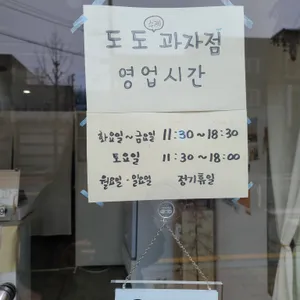 도도 과자점
영업시간
화요일~금요일 11:30~18:30
토요일 11:30~18:00
월요일·일요일 정기휴일